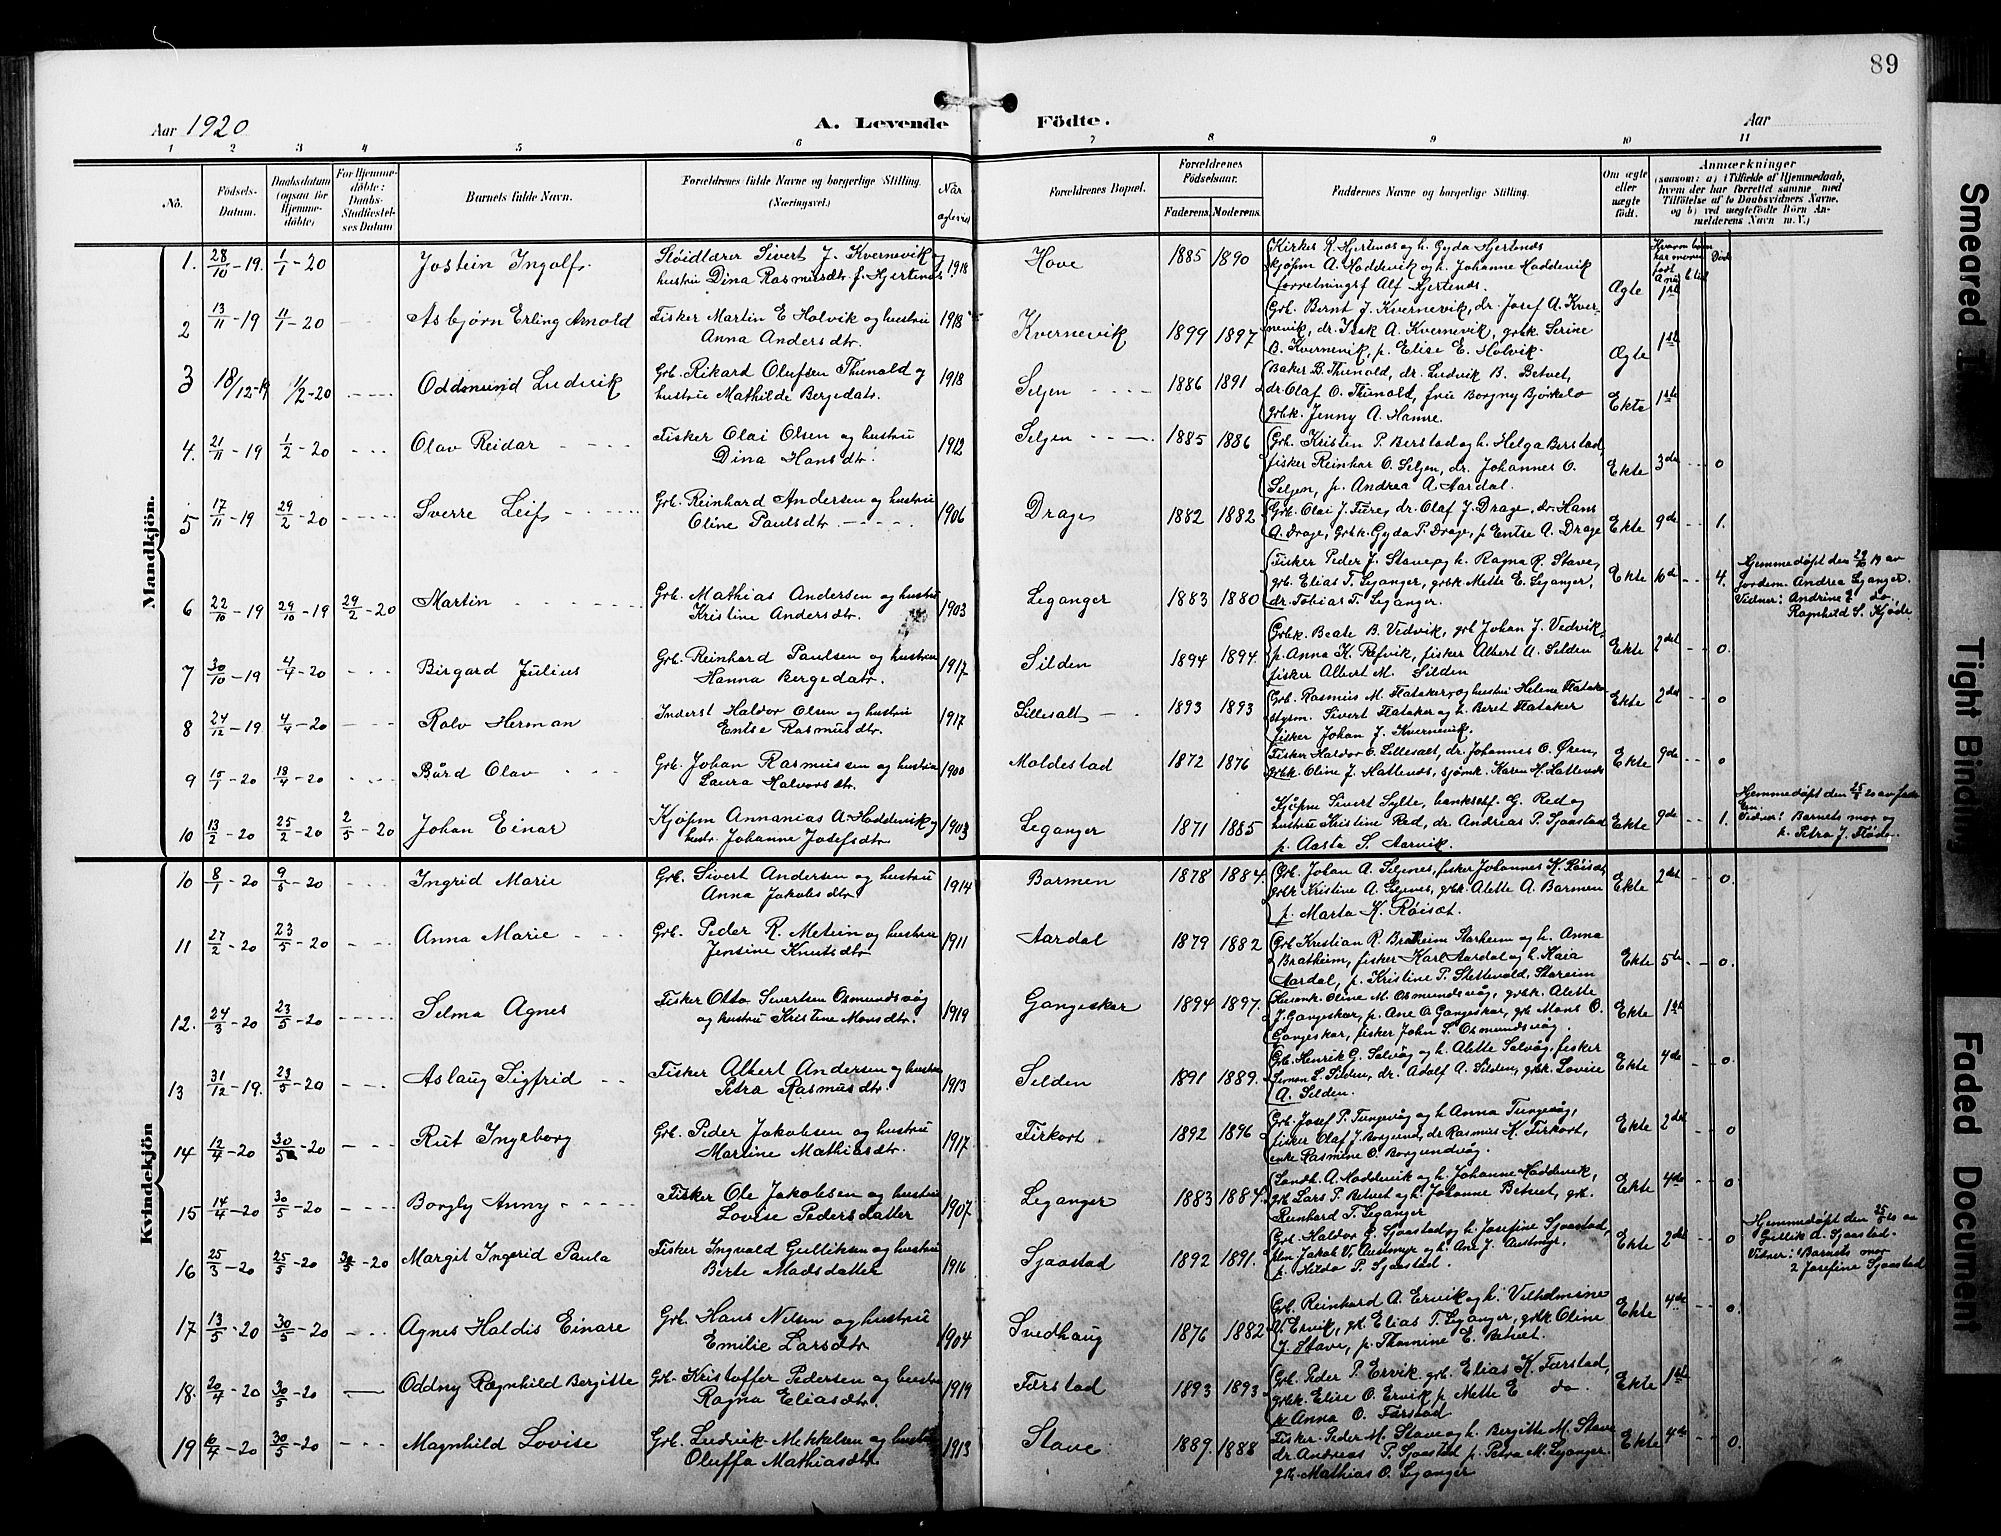 89
Aar 1920
A. Levende Födte.
Aar
1 2 3 4 5 6 7 8 9 10 11
No.
Födsels-Datum.
Daabsdatum (ogsaa for Hjemme-döbte)
For Hjemme-döbte: Daabs-Stadfæstel-ses Datum
Barnets fulde Navn.
Forældrenes fulde Navne og borgerlige Stilling. (Næringsvei.)
Når egtevied
Forældrenes Bopæl.
Forældrenes Födselsaar.
Faderens. Moderens.
Faddernes Navne og borgerlige Stilling.
Om ægte eller uægte födt.
Anmærkninger
(saasom: a) i Tilfælde af Hjemmedaab, hvem der har forrettet samme, med Tilföielse af to Daabsvidners Navne, og b) ved uægtefödte Börn An-melderens Navn m. V.)
Mandkjön.
1. 28/10-19. 1/1-20 Jostein Ingolf Sløidlærer Sivert J. Kvernevik og
hustru Dina Rasmusdtr. f. Hjertenes 1918 Hove 1885 1890
Kirkes. R. Hjertenes og h. Gyda Hjertenes
kjøpm A. Hoddevik og h. Johanne Hoddevik
forretningsf Alf Hjertenes. Ægte 1st
2 13/11-19 11/1-20 Asbjørn Erling Arnold Fisker Martin E Holvik og hustru
Anna Andersdtr. 1918 Kvernevik 1899 1897
Grb. Bernt J. Kvernevik, dr. Josef A. Kver-
nevik, dr. Isak A. Kvernevik, grbk. Serine
B. Kvernevik, p. Elise E. Holvik. Ægte 1st
3 18/12-19 1/2-20 Oddmund Ludvik Grb. Rikard Olufsen Thunold og
hustru Mathilde Bergedatr. 1918 Seljen 1886 1891
Baker B. Thunold, dr. Ludvik B. Betvet,
dr Olaf O. Thunold, fru Borgny Bjørkelo
grbk. Jenny A. Hamre. Ekte 1ste
4. 21/11-19 1/2-20 Olav Reidar Fisker Olai Olsen og hustru
Dina Hansdtr. 1912 Seljen 1885 1886
Grb. Kristen P. Berstad og h. Helga Berstad,
fisker Reinhar O. Seljen, dr. Johannes O.
Seljen, p. Andrea A. Aardal. Ekte 3de 0
5 17/11-19 29/2-20 Sverre Leif Grb. Reinhard Andersen og hustru
Oline Paulsdtr 1906 Drage 1882 1882
Grb. Olai J. Fure, dr. Olaf J. Drage, dr. Hans
A. Drage, Grbk. Gyda P. Drage, p Entse A. Drage Ekte 9de 1.
6 22/10-19 29/10-19 29/2-20 Martin Grb. Mathias Andersen og hustru
Kristine Andersdtr. 1903 Leganger 1883 1880
Fisker Peder J. Stave og h. Ragna R. Stave,
grb. Elias T. Leganger, grbk Mette E. Leganger,
dr. Tobias T. Leganger. Ekte 10de 4.
Hjemmedøpt den 29/10 19 av
jordem. Andrea Leganger.
Vidner: Andrine do.
Ragnhild S. Kjøde.
7 30/10-19 4/4-20 Birgard Julius Grb. Reinhard Paulsen og hustru
Hanna Bergedatr. 1917 Silden 1894 1894.
Grbk. Beate B. Vedvik, grb Johan J. Vedvik,
p. Anna K. Refvik, fisker Albert A. Silden
fisker Albert M. Silden Ekte 2det 0.
8 24/12-19 4/4-20 Rolv Herman Inderst Haldor Olsen og hustru
Entse Rasmusdtr. 1917 Lillesalt 1893 1893
Grb. Rasmus M. Flataker, og hustru Helene Flataker
styrm. Sivert Flataker og h. Beret Flataker
fisker Johan J. Kvernevik. Ekte 2det 0
9 15/1-20 18/4-20 Bård Olav Grb. Johan Rasmussen og hustru
Laura Halvorsdtr. 1900 Moldestad 1872 1876
Fisker Haldor O. Lillesalt, dr. Johannes O. Øren,
grbk. Oline J. Hattenes, sjømk. Karen M. Hattenes Ekte 9de 0
10 13/2-20 25/2-20 2/5-20 Johan Einar Kjøpm Annanias A. Hoddevik og
hustr. Johanne Josefsdtr 1903 Leganger 1871 1885
Kjøpm Sivert Sylte, bankschf. G. Red og
hustru Kristine Red, dr. Andreas P. Sjaastad
p. Aasta S. Aarvik. Ekte 9de 1.
Hjemmedøpt den 25/2 20 av fade
ren.
Vidner: Barnets mor og
p. Petra J. Fløde.
Kvindekjön
10 8/1-20 9/5-20 Ingrid Marie Grb. Sivert Andersen og hustru
Anna Jakobsdtr 1914 Barmen 1878 1884.
Grb. Johan A. Seljenes, fisker Johannes K. Røiset
grbk Kristine A. Seljenes, grbk. Alette A. Barmen
p. Marta K. Røiset. Ekte 2det 0.
11 27/2-20 23/5-20 Anna Marie Grb. Peder R. Metun og hustru
Jensine Knutsdtr 1911 Aardal 1879 1882
Grb Kristian R. Bratheim Starheim og h. Anna
Bratheim, fisker Karl Aardal og h. Kaia
Aardal, p. Kristine P. Slettevold, Storeim Ekte 5te 0.
12. 24/3-20 23/5-20 Selma Agnes Fisker Otto Sivertsen Osmundsvåg
og hustru Kristine Monsdtr. 1919 Gangeskar 1894 1897.
Husmk. Oline M. Osmundsvåg, grbk. Alette
J. Gangeskar, p. Ane O Gangeskar, grb Mons O.
Gangeskar, fisker John S. Osmundsvåg. Ekte 1st
13 31/12-19. 23/5-20 Aslaug Sigfrid Fisker Albert Andersen og hustru
Petra Rasmusdtr. 1913 Selden 1891 1889.
Grb. Henrik G. Salvåg og h. Alette Salvåg, fisker
Simon S. Silden, dr. Adolf A. Silden, grbk Lovise
A. Selden. Ekte 4de 0.
14 12/4-20 30/5-20 Rut Ingeborg Grb. Peder Jakobsen og hustru
Martine Mathiasdtr. 1917. Firkort 1892 1896
Grb. Josef P. Tungevåg og h Anna Tungevåg,
fisker Olaf J. Borgund, dr Rasmus K. Firkort,
enke Rasmine O. Borgundvåg. Ekte 2det 0
15 14/4-20 30/5-20 Borgly Anny Fisker Ole Jakobsen og hustru
Lovise Pedersdatter 1907. Leganger 1883 1884.
Landh. A. Hoddevik og h Johanne Hoddevik,
grb Lars P. Betvet og h. Johanne Betvet, grb.
Reinhard T. Leganger Ekte 4de 0
16 25/3-20 25/5-20 30/5-20 Margit Ingerid Paula Fisker Ingvald Gulliksen og hustru
Berte Madsdatter 1916 Sjaastad 1892 1891.
Grb. Haldor G. Sjaastad og h. Josefine Sjaastad,
plm Jakob V. Austmyr og h. Ane J. Austmyr,
p. Hilda P. Sjaastad. Ekte 2det 0
Hjemmedøpt den 25/5 20 av
Gullik A. Sjaastad.
Vidner: 1 Barnets mor
2 Josefine Sjaastad
17 13/5-20 30/5-20 Agnes Haldis Einare Grb. Hans Nilsen og hustru
Emilie Larsdtr 1904 Svedhaug 1876 1882
Grb. Reinhard A. Ervik og h. Vilhelmine
A. Ervik, grb. Elias T. Leganger, grbk Oline
J. Stave, p. Thomine E. Betvet. Ekte 4de 0.
18. 20/4-20 30/5-20 Oddny Ragnhild Bergitte Grb. Kristoffer Pedersen og hustru
Ragna Eliasdtr. 1919 Færstad 1893 1893
Grb. Peder P. Ervik grb. Elias K. Færstad,
grbk. Elise O. Ervik p Mette E do
p Anna O. Færstad Ekte 1st
19 6/4-20 30/5-20 Magnhild Lovise Grb. Ludvik Mekkelsen og hustru
Oluffa Mathiasdtr 1913 Stave 1887. 1888
Fisker Peder M. Stave og h. Bergitte M. Stave
dr Andreas P. Sjaastad p Petra M. Leganger.
grb. Mathias O. Leganger Ekte 4de 0.
Smeared
Tight Binding
Faded Document